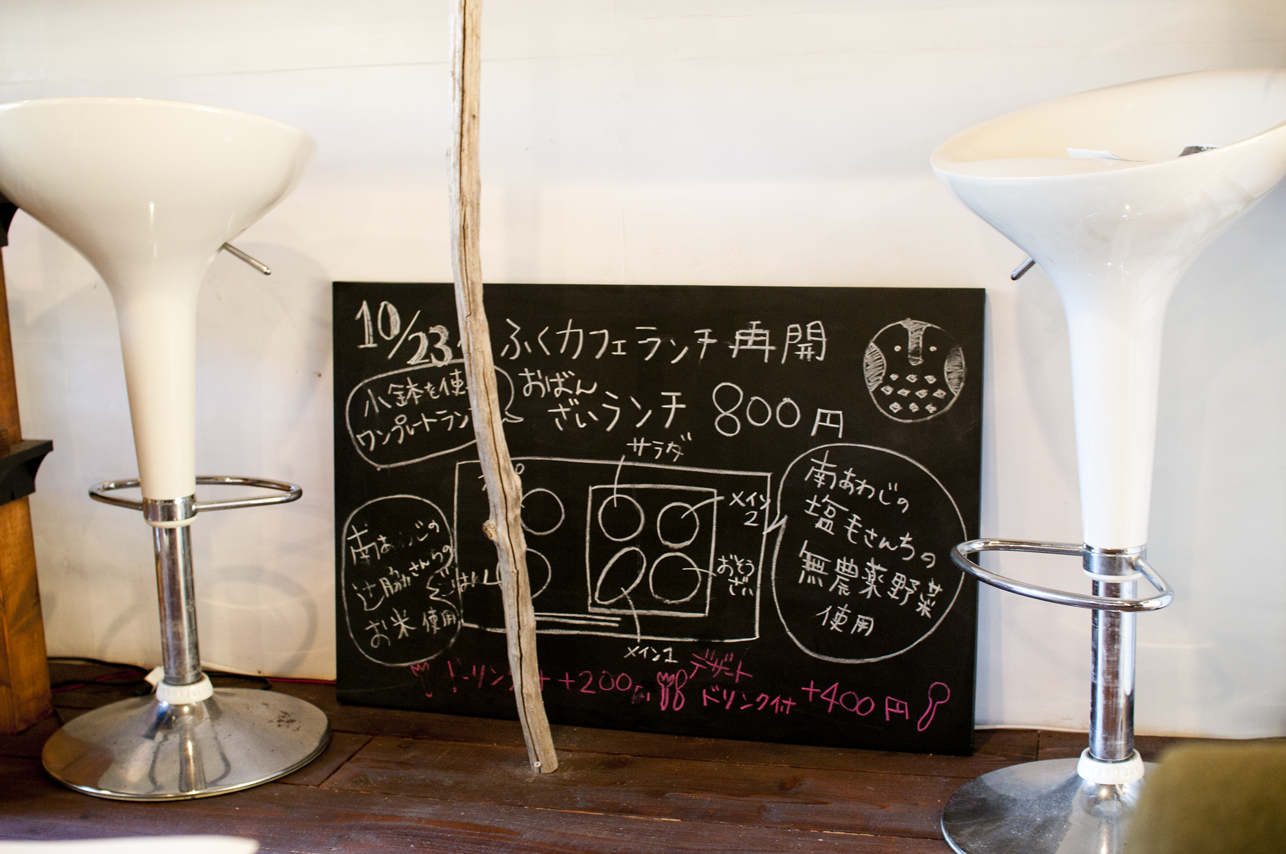 10/23〜 ふくカフェランチ再開
小鉢を使
ワンプレートラン
おばん
ざいランチ 800円
サラダ
メイン
2
おそう
ざい
メイン1
ごはん
南あわじの
辻脇さんの
お米使用
南あわじの
塩毛さんちの
無農薬野菜
使用
ドリンク付 +200円
デザート
ドリンク付 +400円